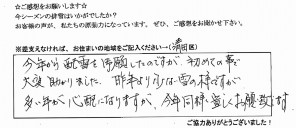 ☆ご感想をお願いします☆
今シーズンの排雪はいかがでしたか?
お客様の声が、私たちの原動力になっています。ぜひ、ご感想をお聞かせ下さい。
※差支えなければ、お住まいの地域をご記入ください→(清田区)
今年から排雪を お願いしたのですが 初めての事で
大変助かりました。昨年より少ない雪の様ですが
多い年が心配になりますが、今年同様宜しくお願い致します。
ご協力ありがとうございました!